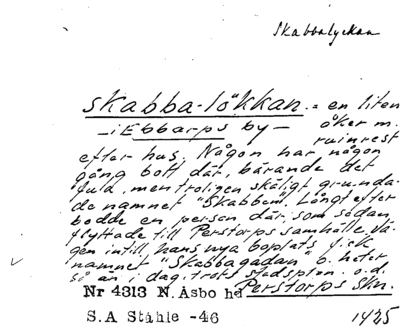 Skabbalyckan
skabba-lökkan = en liten
– i Ebbarps by – åker m.
ruinrest
efter hus. Någon har någon
gång bott där, bärande det
fula, men troligen skäligt grunda-
de namnet "Skabben". Långt efter
bodde en person där, som sedan
flyttade till Perstorps samhälle. Vä-
gen intill hans nya boplats fick
namnet "Skabbagadan" o. heter
så än i dag, trots stadsplan o.d.
Nr 4313 N. Åsbo hd Perstorps skn.
S.A Ståhle -46 1935